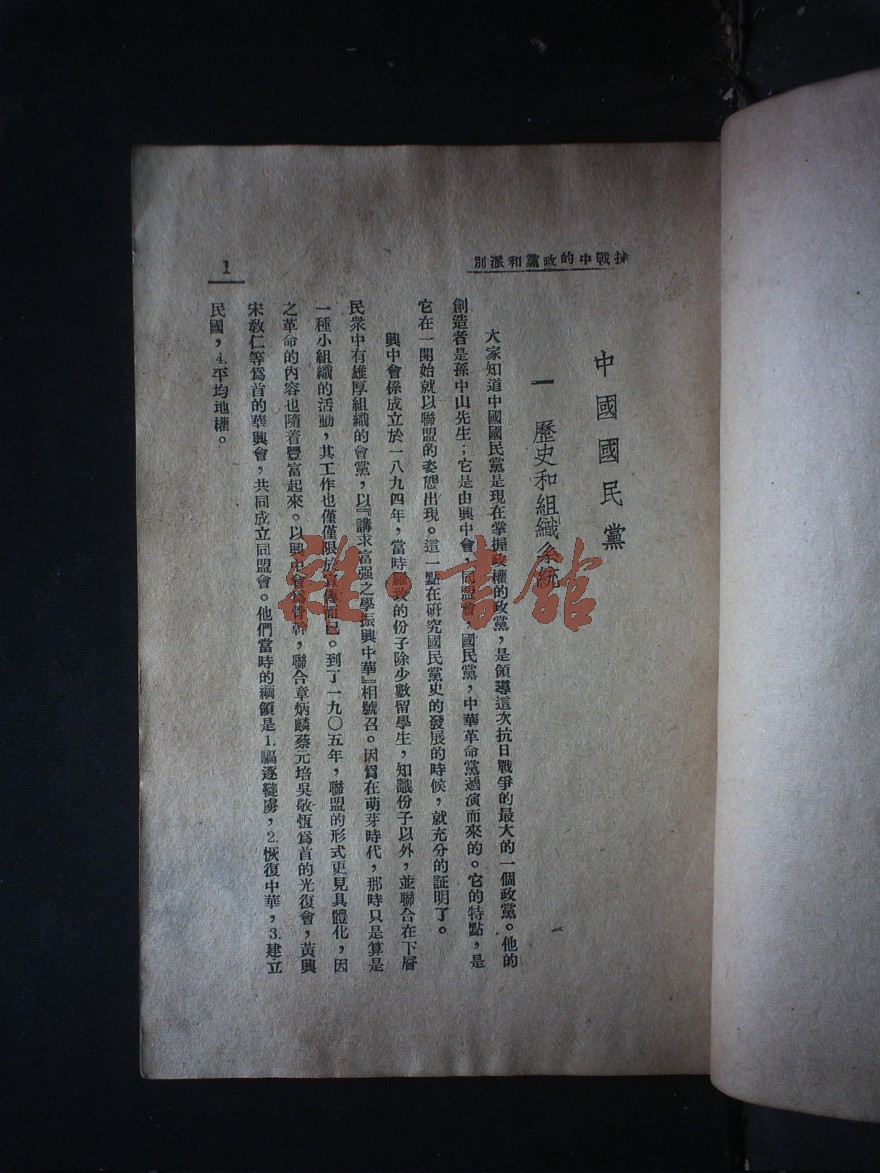 抗戰中的政黨和派別
中國國民黨
一 歷史和組織系統
大家知道中國國民黨是現在掌握政權的政黨，是領導這次抗日戰爭的最大的一個政黨。他的
創造者是孫中山先生；它是由興中會，同盟會，國民黨，中華革命黨遞演而來的。它的特點，是
它在一開始就以聯盟的姿態出現。這一點在研究國民黨史的發展的時候，就充分的証明了。
興中會係成立於一八九四年，當時羅致的份子除少數留學生，知識份子以外，並聯合在下層
民衆中有雄厚組織的會黨，以『講求富强之學振興中華』相號召。因爲在萌芽時代，那時只是算是
一種小組織的活動，其工作也僅僅限於宣傳而已。到了一九〇五年，聯盟的形式更見具體化，因
之革命的內容也隨着豐富起來。以興中會爲骨幹，聯合章炳麟蔡元培吳敬恆爲首的光復會，黃興
宋敎仁等爲首的華興會，共同成立同盟會。他們當時的綱領是1.驅逐韃虜，2.恢復中華，3.建立
民國，4.平均地權。
1
雜·書館